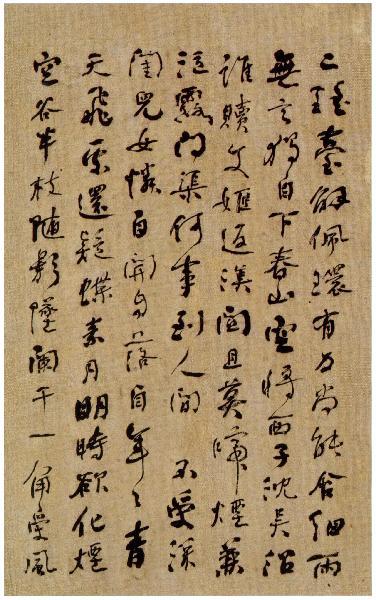 二瑤臺解佩環有力尚能含細雨
無言獨自下春山空將西子沈吳沼
誰贖文姬返漢關且莫啼煙兼
泣露問渠何事到人間 不受深
閨兒女憐自開自落自年々青
天飛處還疑蝶素月明時欲化煙
空谷半枝隨影墮闌干一角受風